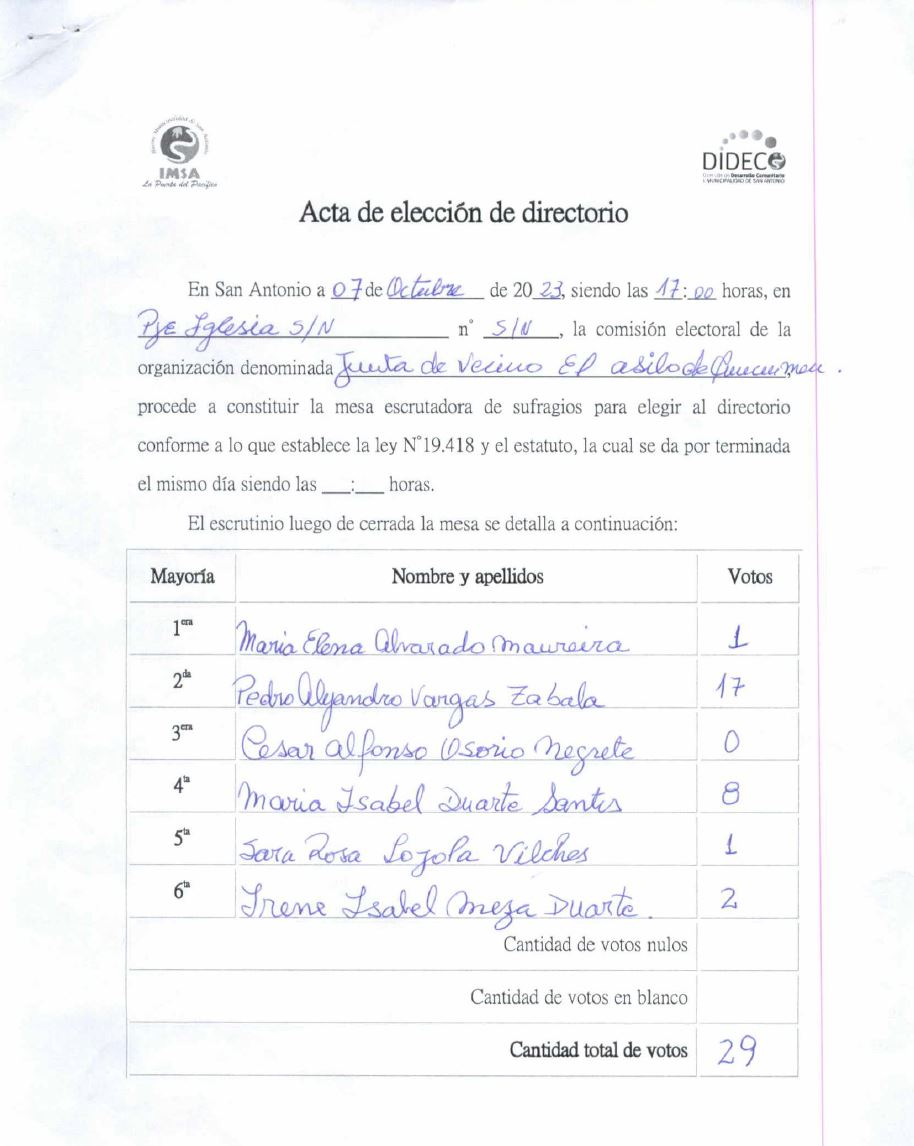 IMSA
La Puerta del Pacífico
DIDECO
Dirección de Desarrollo Comunitario
I. MUNICIPALIDAD DE SAN ANTONIO
Acta de elección de directorio
En San Antonio a 07 de Octubre de 2023, siendo las 17:00 horas, en
Pje Iglesia S/N n° S/N, la comisión electoral de la
organización denominada Junta de Vecino El asilo de
procede a constituir la mesa escrutadora de sufragios para elegir al directorio
conforme a lo que establece la ley N°19.418 y el estatuto, la cual se da por terminada
el mismo día siendo las __:__ horas.
El escrutinio luego de cerrada la mesa se detalla a continuación:
Mayoría Nombre y apellidos Votos
1era Maria Elena Alvarado Maureira 1
2da Pedro Alejandro Vargas Zabala 17
3era Cesar Alfonso Osorio Negrete 0
4ta Maria Isabel Duarte Santis 8
5ta Sara Rosa Loyola Vilches 1
6ta Irene Isabel Meza Duarte. 2
Cantidad de votos nulos
Cantidad de votos en blanco
Cantidad total de votos 29